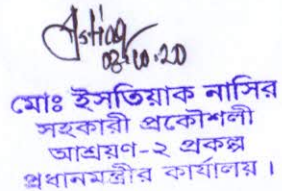 08.10.20
মোঃ ইসতিয়াক নাসির
সহকারী প্রকৌশলী
আশ্রয়ণ-২ প্রকল্প
প্রধানমন্ত্রীর কার্যালয়।